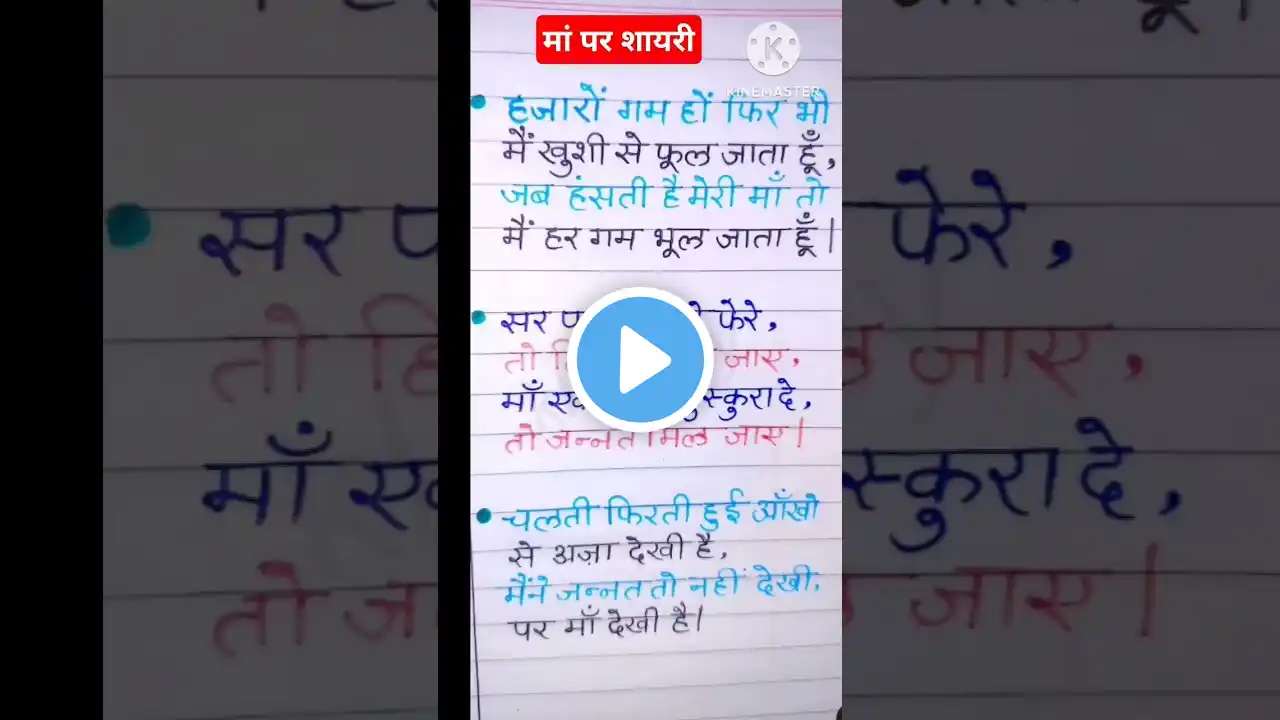 मां पर शायरी
KINEMASTER
हजारों गम हों फिर भी
मैं खुशी से फूल जाता हूँ,
जब हंसती है मेरी माँ तो
मैं हर गम भूल जाता हूँ।
सर फेरे,
तो जाए,
माँ मुस्कुरा दे,
तो जन्नत मिल जाए।
चलती फिरती हुई आँखो
से अज़ा देखी है,
मैंने जन्नत तो नहीं देखी,
पर माँ देखी है।